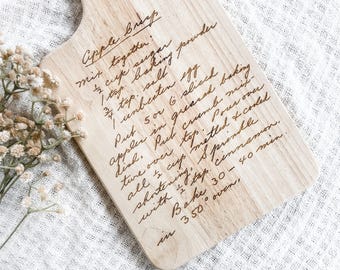 Apple Crisp
mix together
½ cup sugar
1 tsp baking powder
¾ tsp salt
1 unbeaten egg
Put 5 or 6 sliced
apples in greased baking
dish. Put crumb mix
ture over top. Pour over
all ⅓ cup melted & cooled
shortening. Sprinkle
with ½ tsp cinnamon.
Bake 30-40 min.
in 350° oven